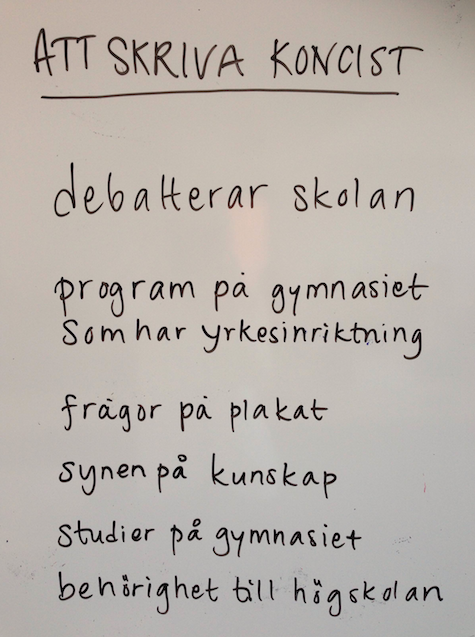 ATT SKRIVA KONCIST
debatterar skolan
program på gymnasiet
som har yrkesinriktning
frågor på plakat
synen på kunskap
studier på gymnasiet
behörighet till högskolan